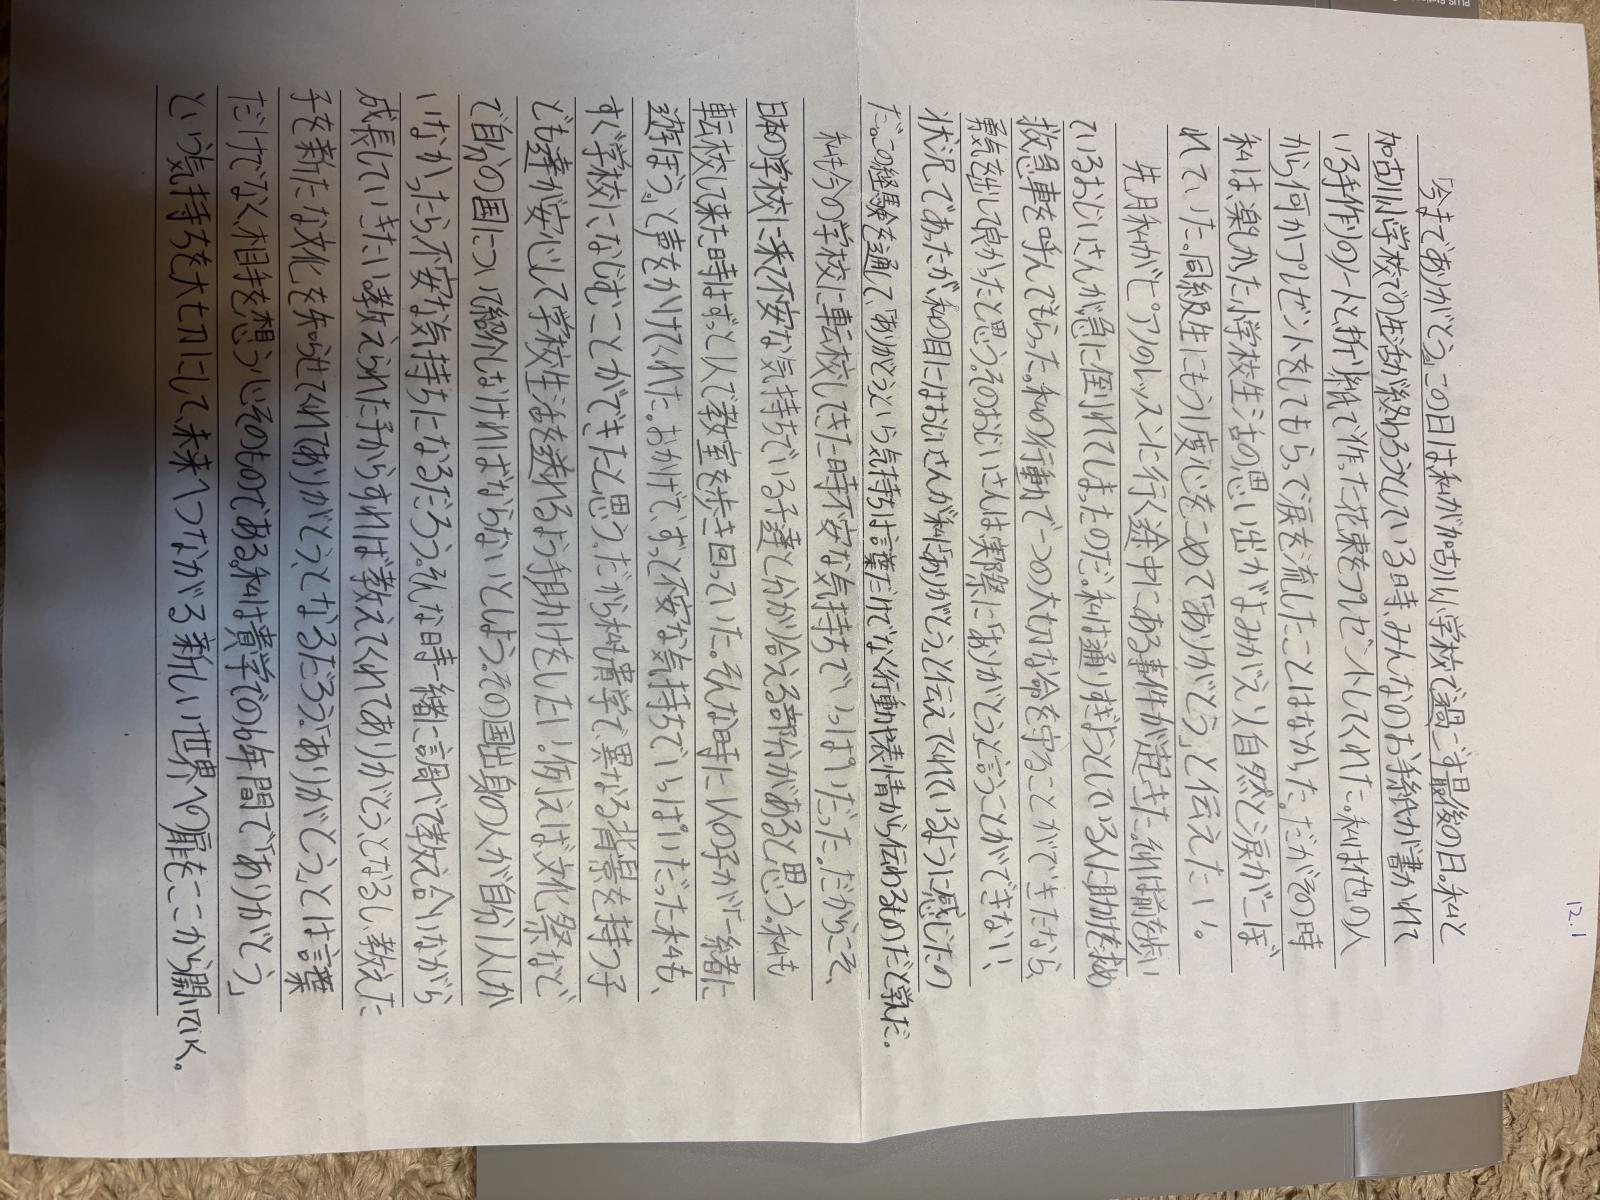 12.1
「今までありがとう。」この日は私が加古川小学校で過ごす最後の日。私と
加古川小学校での生活が終わろうとしている時みんなのお手紙が書かれて
いる手作りのノートと折り紙で作った花束をプレゼントしてくれた。私は他の人
から何かプレゼントをしてもらって涙を流したことはなかった。だがその時
私は楽しかった小学校生活の思い出がよみがえり自然と涙がこぼ
れていた。同級生にもう1度心をこめて「ありがとう」と伝えたい。
先月私がピアノのレッスンに行く途中にある事件が起きた。それは前を歩い
ているおじいさんが急に倒れてしまったのだ。私は通りすぎようとしている人に助けを求め
救急車を呼んでもらった。私の行動で一つの大切な命を守ることができたなら
勇気を出して良かったと思う。そのおじいさんは実際に「ありがとう」と言うことができない
状況であったが私の目にはおじいさんが私に「ありがとう」と伝えてくれているように感じたの
だ。この経験を通して、「ありがとうという気持ちは言葉だけでなく行動や表情から伝わるものだと学んだ。
私も今の学校に転校してきた時不安な気持ちでいっぱいだった。だからこそ、
日本の学校に来て不安な気持ちでいる子達と分かり合える部分があると思う。私も
転校して来た時はずっと1人で教室を歩き回っていた。そんな時に1人の子が「一緒に
遊ぼう。」と声をかけてくれた。おかげで、ずっと不安な気持ちでいっぱいだった私も、
すぐ学校になじむことができたと思う。だから私も貴学で異なる背景を持つ子
ども達が安心して学校生活を送れるよう手助けをしたい。例えば文化祭など
で自分の国について紹介しなければならないとしよう。その国出身の人が自分1人しか
いなかったら不安な気持ちになるだろう。そんな時一緒に調べて教え合いながら
成長していきたい。教えられた子からすれば教えてくれてありがとう、となるし、教えた
子を新たな文化を知らせてくれてありがとう、となるだろう。「ありがとう」とは言葉
だけでなく相手を想う心そのものである。私は貴学での6年間で「ありがとう」
という気持ちを大切にして未来へつながる新しい世界への扉をここから開いていく。